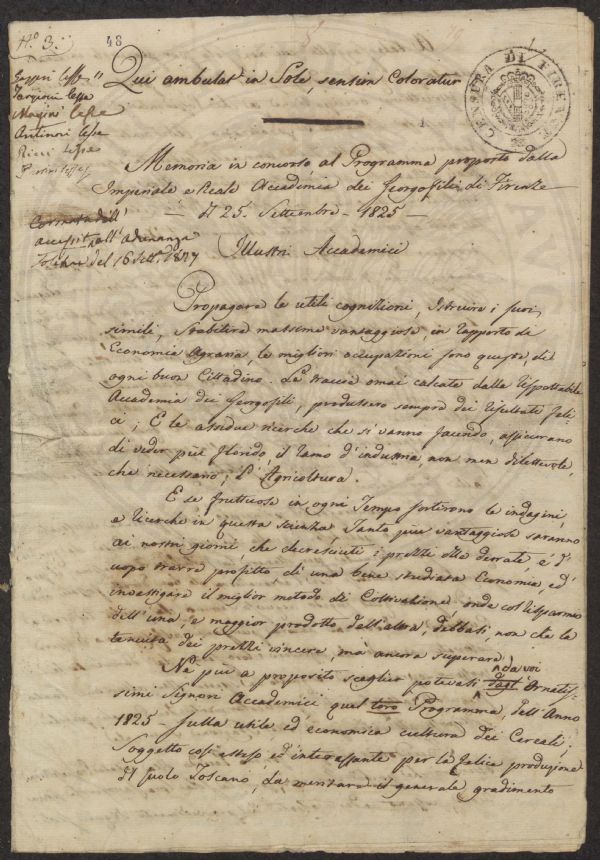 N.o 3.
48
Gazzeri lesse
Targioni lesse
Magini lesse
Antinori lesse
Ricci lesse
CENSURA DI FIRENZE
Qui ambulat in Sole, sensim Coloratur
Memoria in concorso al Programma proposto dalla
Imperiale e Reale Accademia dei Georgofili di Firenze
Il 25. Settembre - 1825 -
all' adunanza
del 16 Sett. 1827
Illustri Accademici
Propagare le utili cognizioni, Istruire i suoi
simili, Stabilire massime vantaggiose, in rapporto di
Economia Agraria, le migliori occupazioni sono queste, di
ogni buon Cittadino. Le traccie omai calcate dalla Rispettabile
Accademia dei Georgofili, produssero sempre dei resultati feli-
ci; E le assidue ricerche che si vanno facendo, assicurano
di veder più florido, il ramo d'industria, non men dilettevole,
che necessario; l'Agricoltura.
E se fruttuose in ogni Tempo sortirono le indagini,
e ricerche in questa scienza Tanto più vantaggiose saranno
ai nostri giorni, che decresciuti i prezzi alle derrate, è d'
uopo trarre profitto, di una bene studiata Economia, ed'
investigare il miglior metodo di Coltivazione, onde col risparmio
dell'una, e maggior prodotto dell'altra, debbasi, non che la
tenuità dei prezzi vincere, mà ancora superare.
Nè più a proposito sceglier potevasi da voi Ornatis-
simi Signori Accademici quel Programma, dell'Anno
1825 - sulla utile ed economica cultura dei Cereali;
Soggetto così esteso ed interessante per la felice produzione
del suolo Toscano, da meritare il generale gradimento